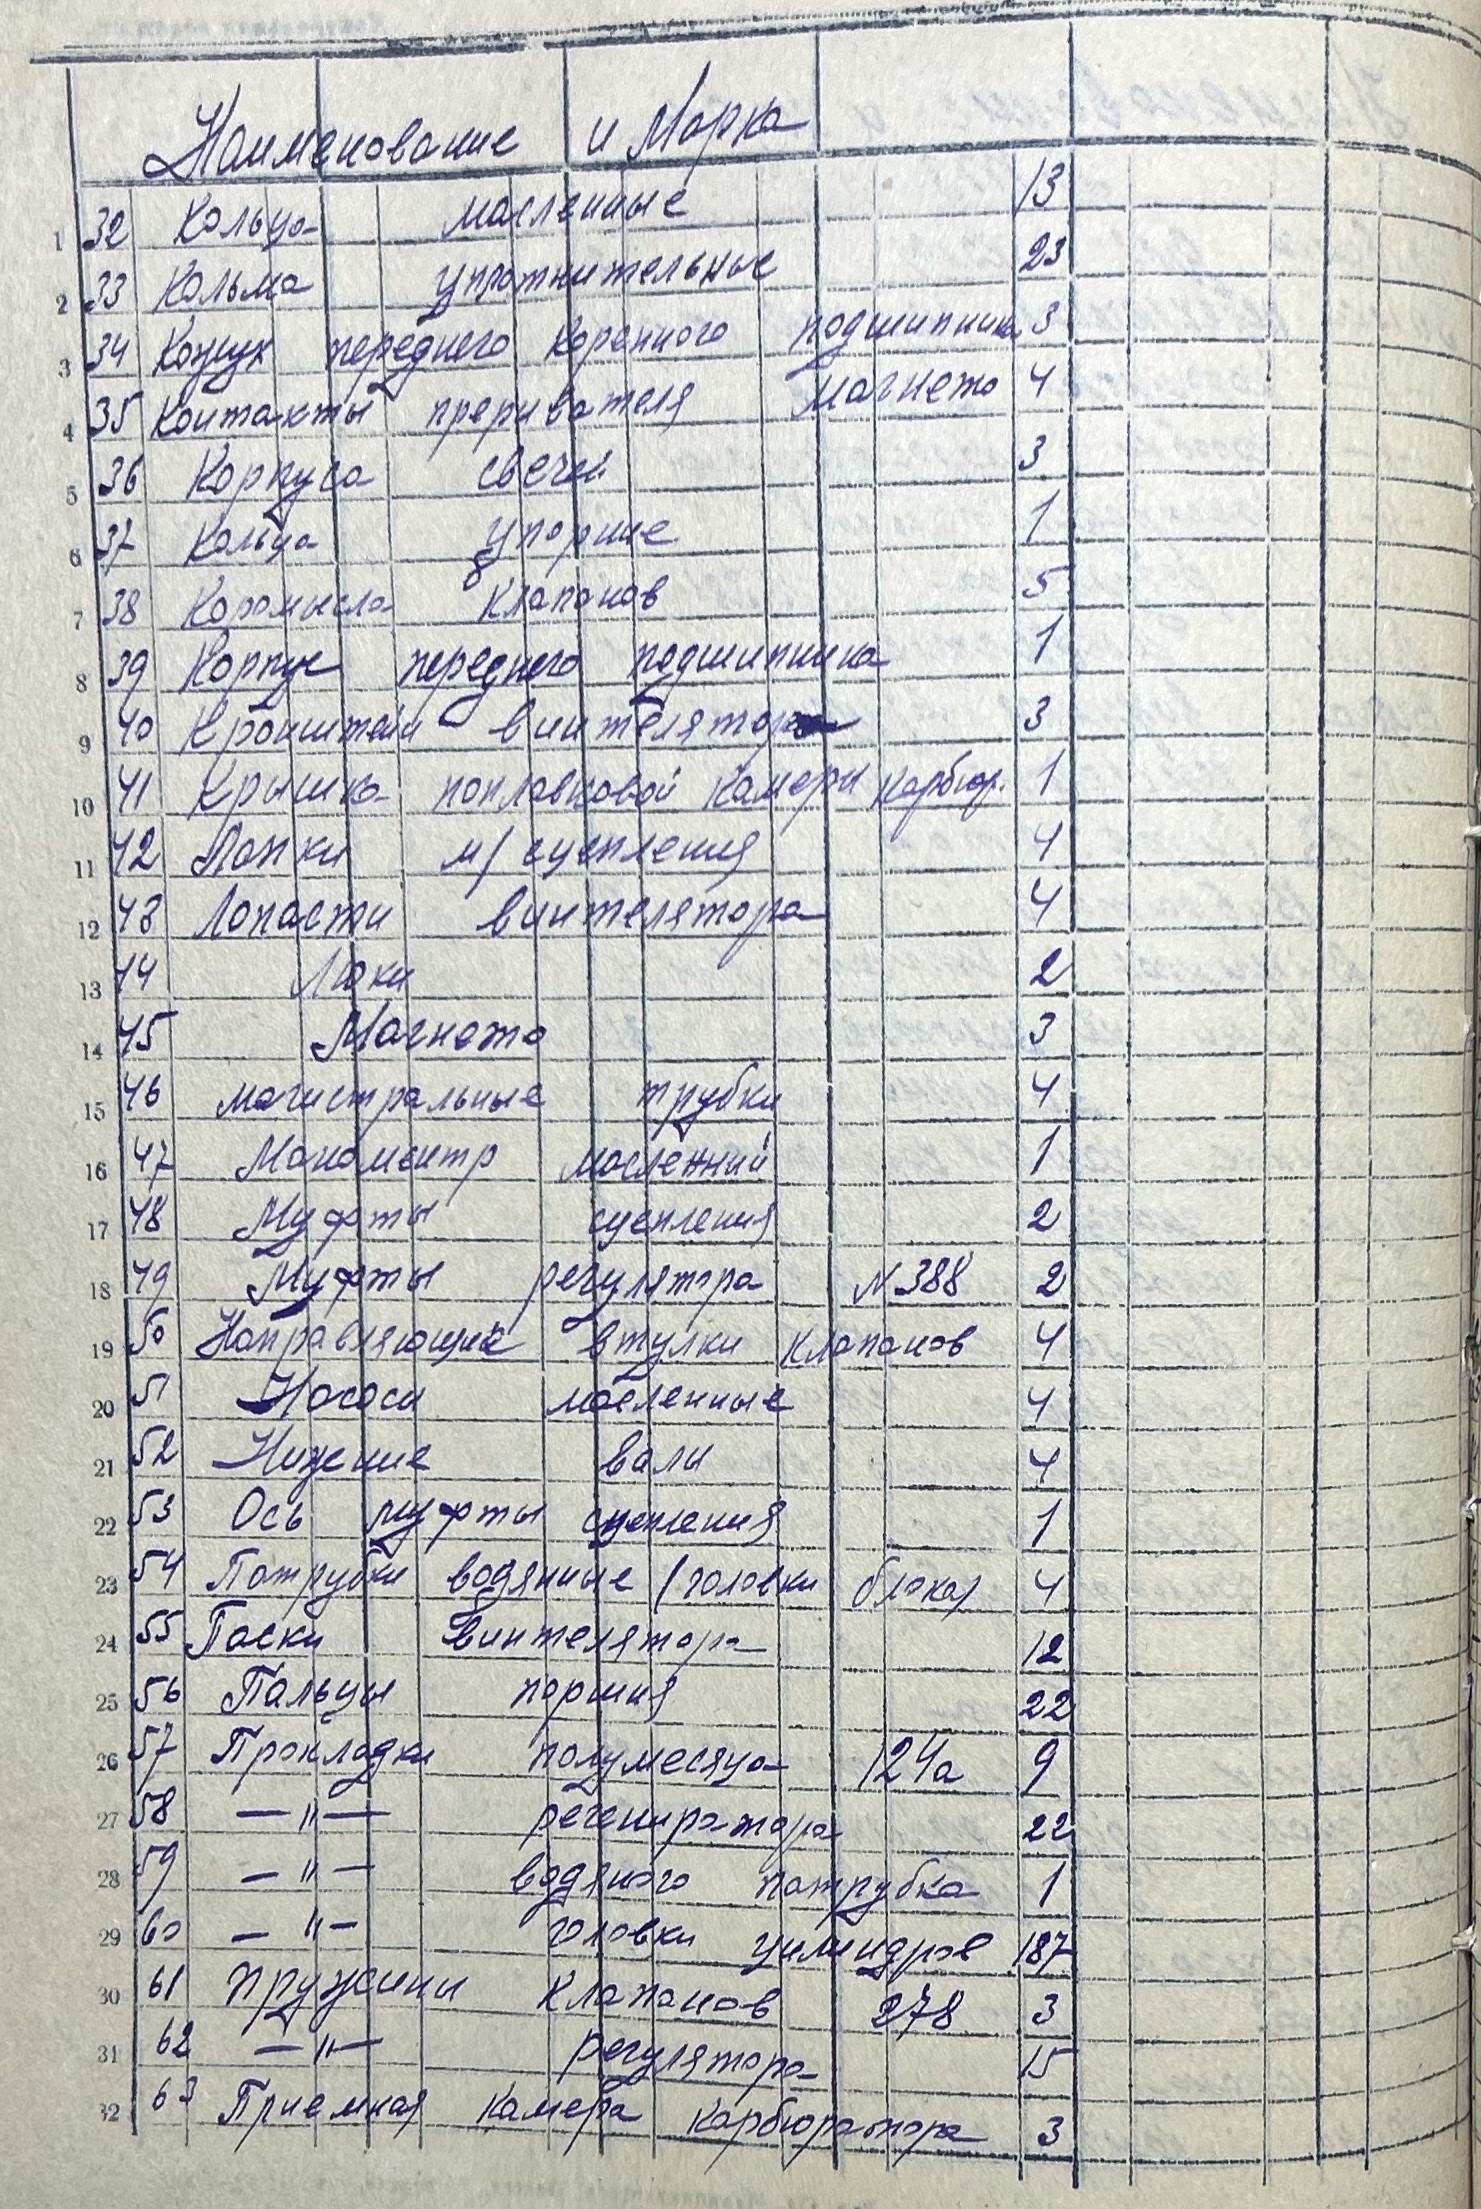 Наименование и Марка
1 32 Кольца масленные 13
2 33 Кольма уплотнительные 23
3 34 Кожух переднего коренного подшипника 3
4 35 Контакты преривателя магнето 4
5 36 Корпуса свечей 3
6 37 Кольца упорние 1
7 38 Коромысла клапанов 5
8 39 Корпус переднего подшипника 1
9 40 Кронштейн винтелятора 3
10 41 Крышка поплавковой камери карбюр. 1
11 42 Лапки м/сцепления 4
12 43 Лопасти винтелятора 4
13 44 Люки 2
14 45 Магнето 3
15 46 магистральные трубки 4
16 47 Манометр масленний 1
17 48 Муфты сцепления 2
18 49 Муфты регулятора N388 2
19 50 Направляющие втулки клапанов 4
20 51 Насоси масленные 4
21 52 Нижние вали 4
22 53 Ось муфты сцепления 1
23 54 Патрубки водянные /головки блока/ 4
24 55 Паски винтелятора 12
25 56 Пальцы поршня 22
26 57 Прокладки полумесяца 124а 9
27 58 — " — регениратора 22
28 59 — " — водяного патрубка 1
29 60 — " — головки цилиндров 187
30 61 Пружини клапанов 278 3
31 62 — " — регулятора 15
32 63 Приемная камера карбюратора 3